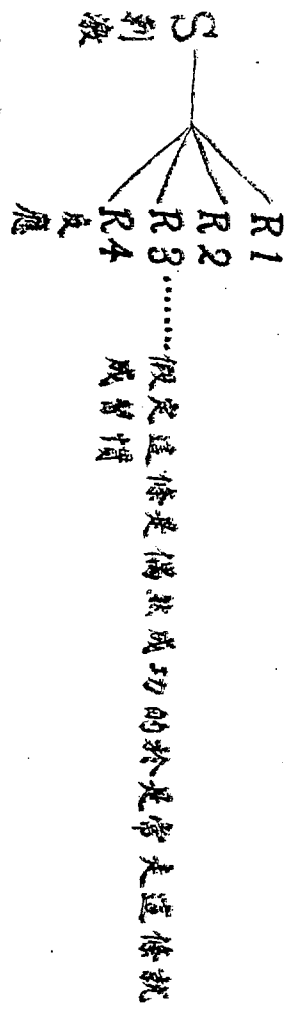 S
刺激
R1
R2
R3………假定這條是偶然成功的於是常走這條就
成習慣
R4
反應